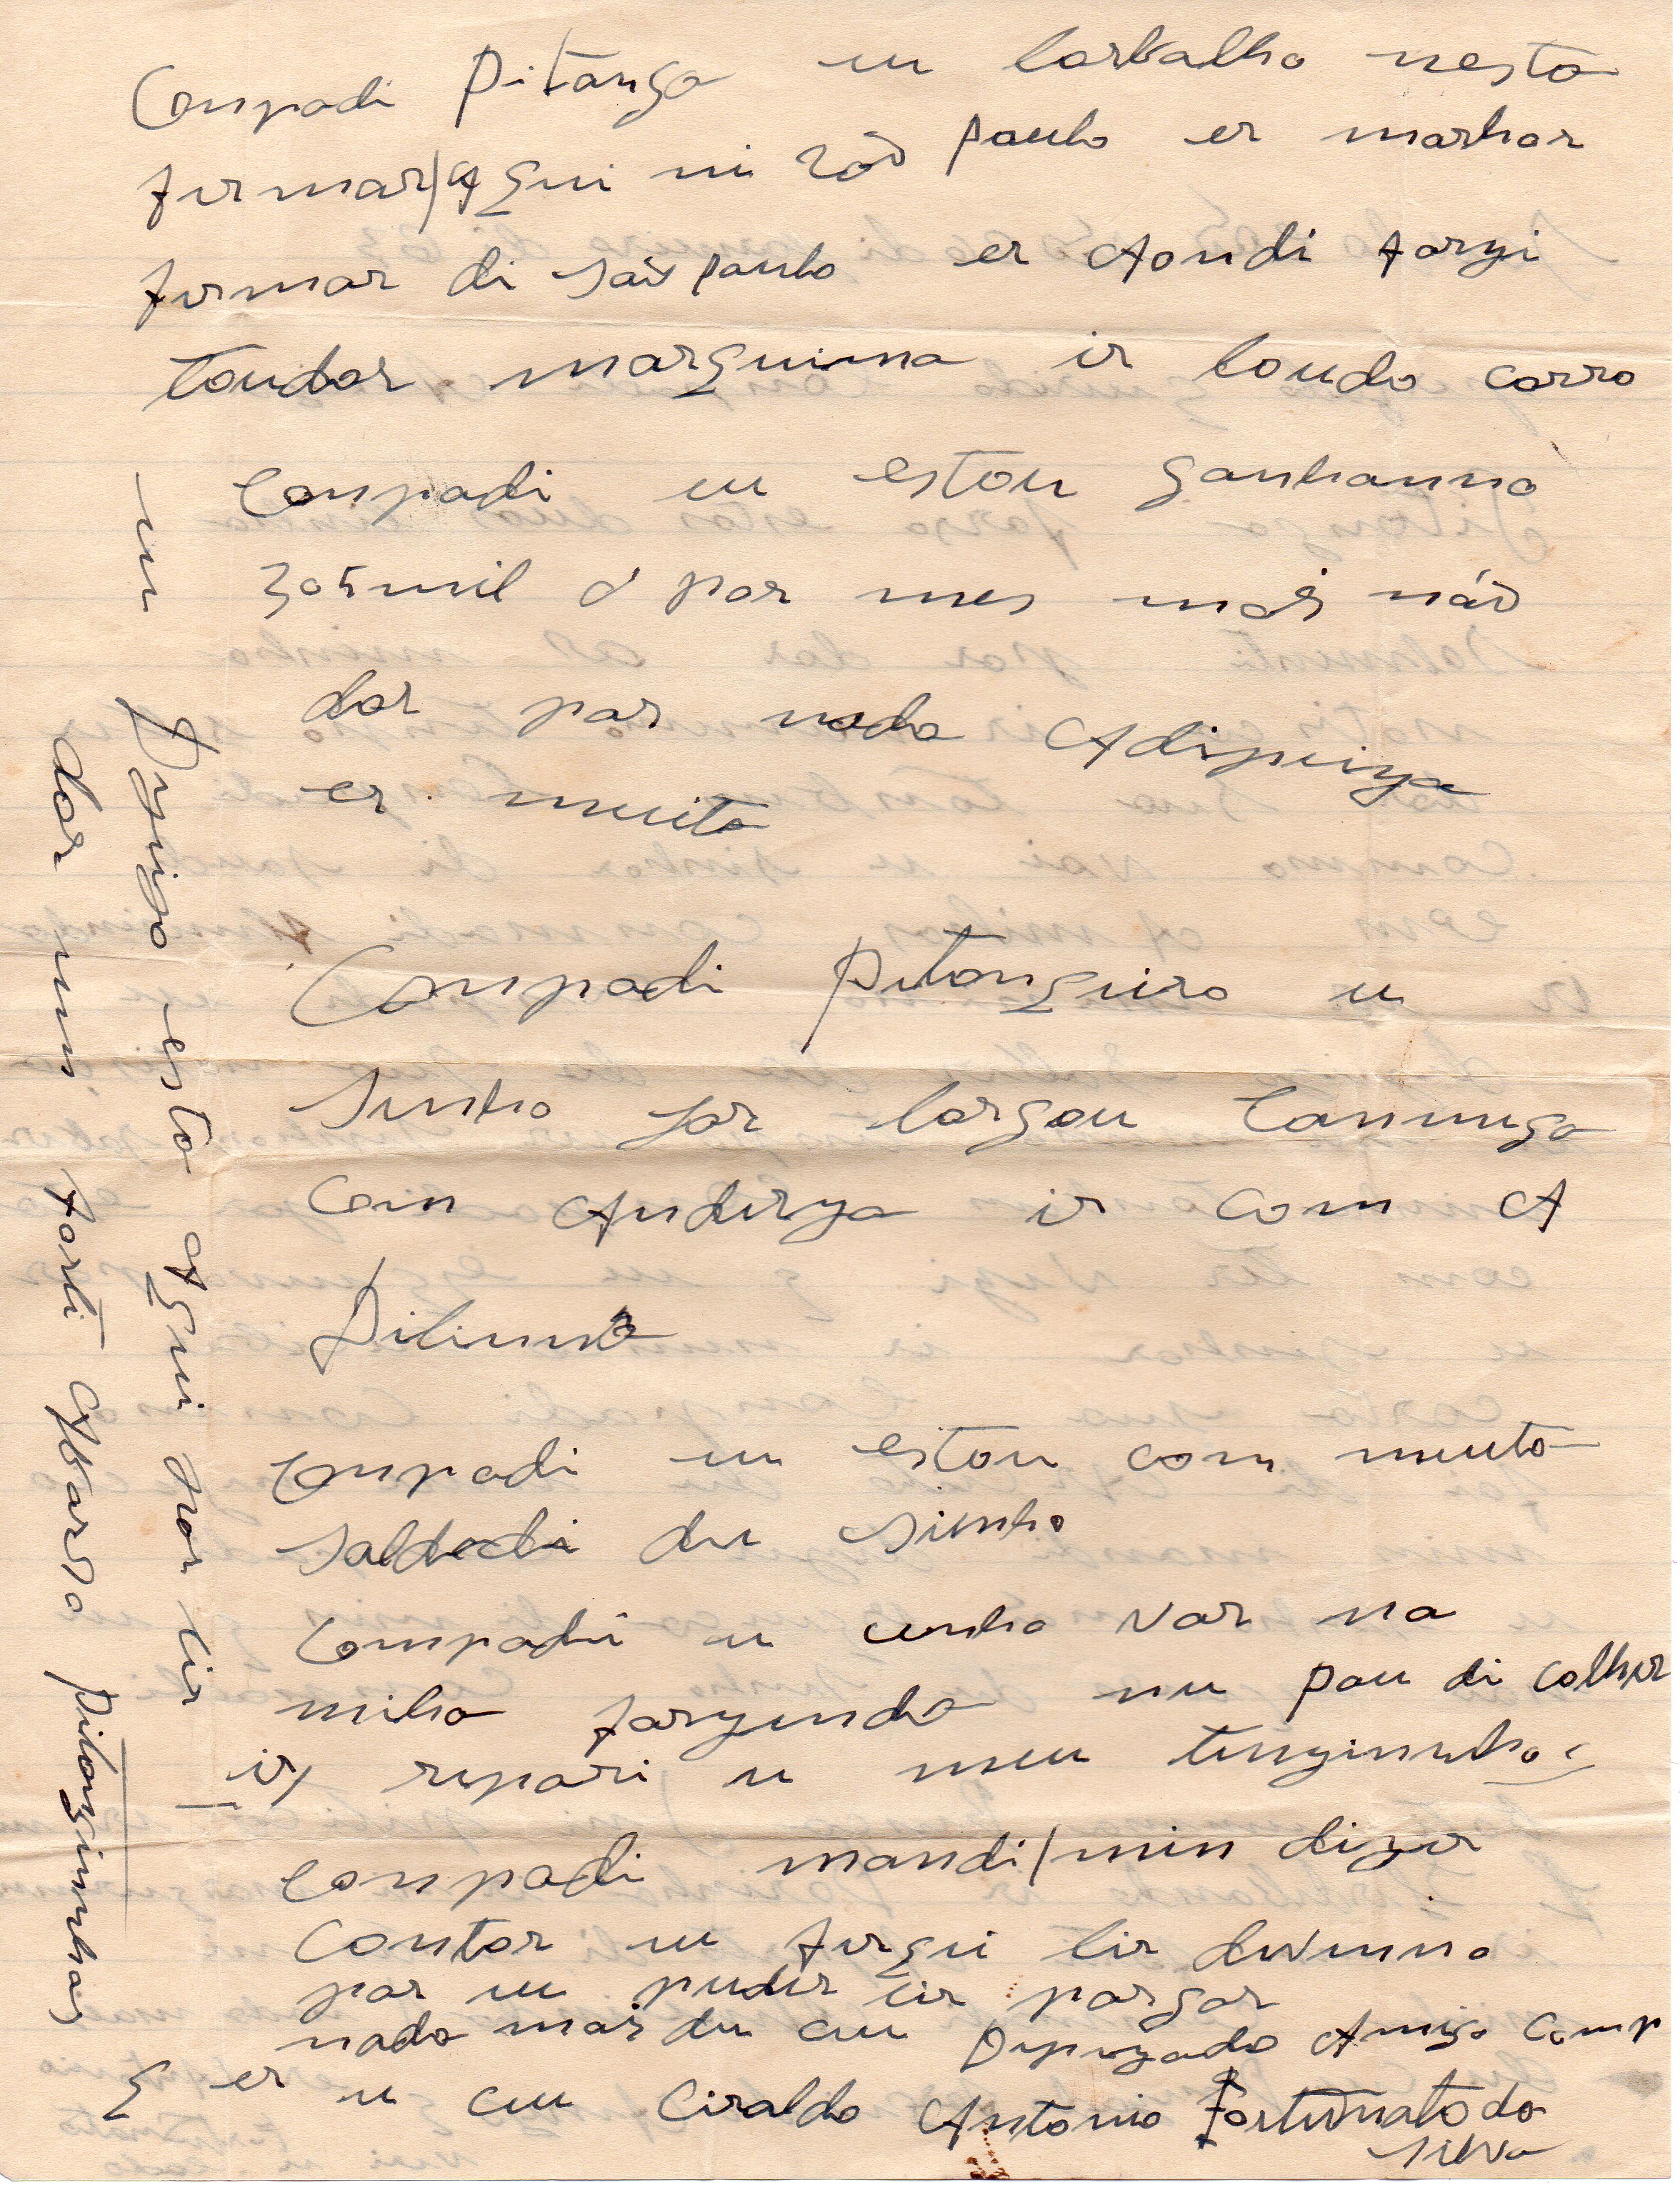 Conpadi Pitanga eu tarbalho nesta
firmar/aqui ni São Paulo er marhor
firmar di São paulo er Aondi fargi
toudar marquina ir toudo carro
Conpadi eu estou ganhanno
305 mil por mes mais não
dar par nada Adipeiza
er muito
Conpadi Pitangueira u
Sinho jar largou Cannuga
Com Anderza ir com A
Dilinna
Conpadi eu estou com muita
Saldadi du Sinho
Conpadi u cunho var na
miha fargenda nu Pau di Colher
ir repari u meu
conpadi mandi/min dizer
Contar eu firqui lir devenno
par eu puder lir pargar
nada mais du cuu Diprezado Amigo Comp
er u cuu Ciraldo Antonio Fortunato da
Silva
eu
Dezeijo esta aqui por lir
dar um forti Abarso Pitanginnhas